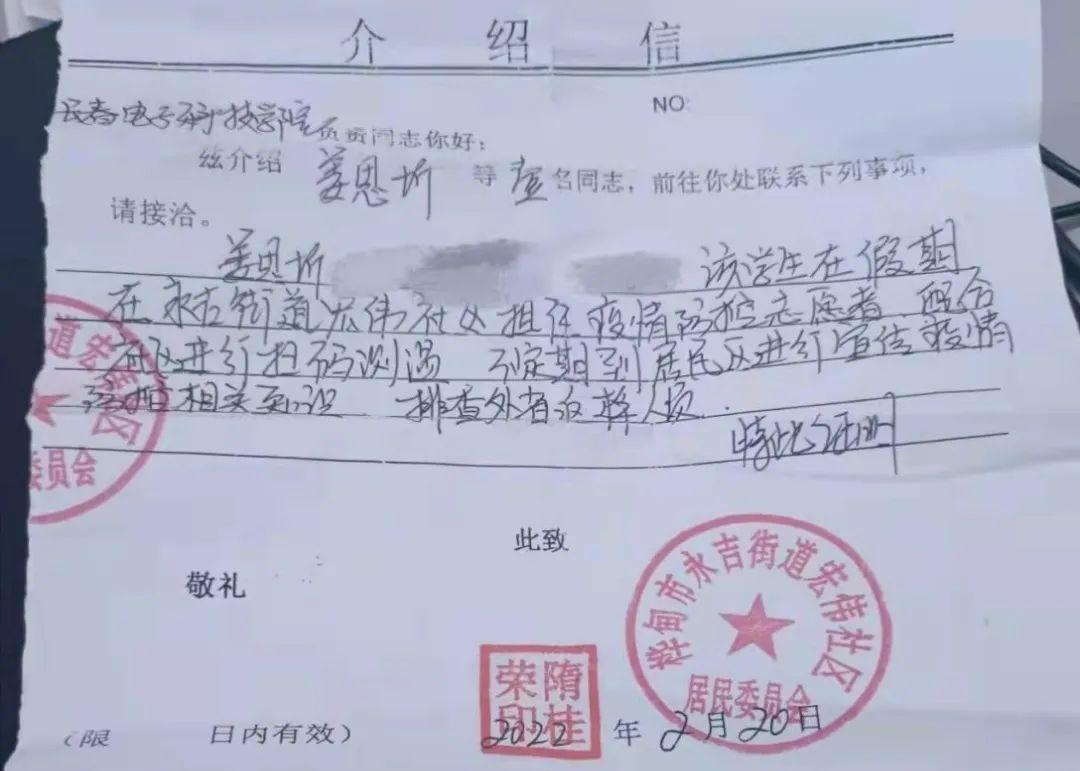 介绍信
NO:
长春电子科技学院负责同志你好：
兹介绍 姜恩圻 等 壹 名同志，前往你处联系下列事项，
请接洽。
姜恩圻 该学生在假期
在永吉街道宏伟社区担任疫情防控志愿者，配合
社区进行扫码测温 不定期到居民区进行宣传疫情
防控相关知识 排查外来返桦人员.
特此证明
道宏伟社区
委员会
此致
敬礼
桦甸市永吉街道宏伟社区
居民委员会
隋桂荣印
2022年2月20日
（限 日内有效）